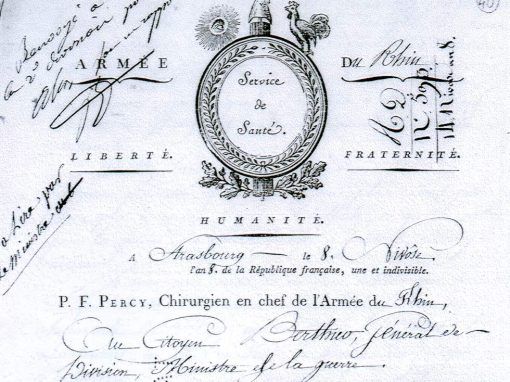 Renvoyé à
la 2e division
ARMÉE DU Rhin
Service
de
Santé.
LIBERTÉ. FRATERNITÉ.
HUMANITÉ.
A Strasbourg le 8. Nivôse
l'an 8. de la République française, une et indivisible.
P. F. PERCY, Chirurgien en chef de l'Armée du Rhin,
Au Citoyen Berthier, Général de
Division, Ministre de la guerre.